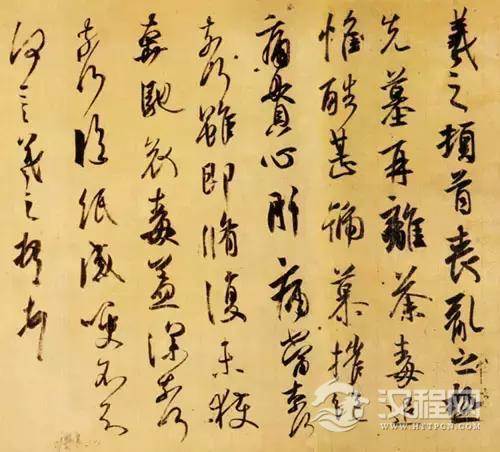 羲之頓首喪亂之極
先墓再離荼毒追
惟酷甚號慕摧絕
痛貫心肝痛當奈何
奈何雖即脩復未獲
奔馳哀毒益深奈何
奈何臨紙感哽不知
何言羲之頓首頓首
汉程网
HTTPCN.COM